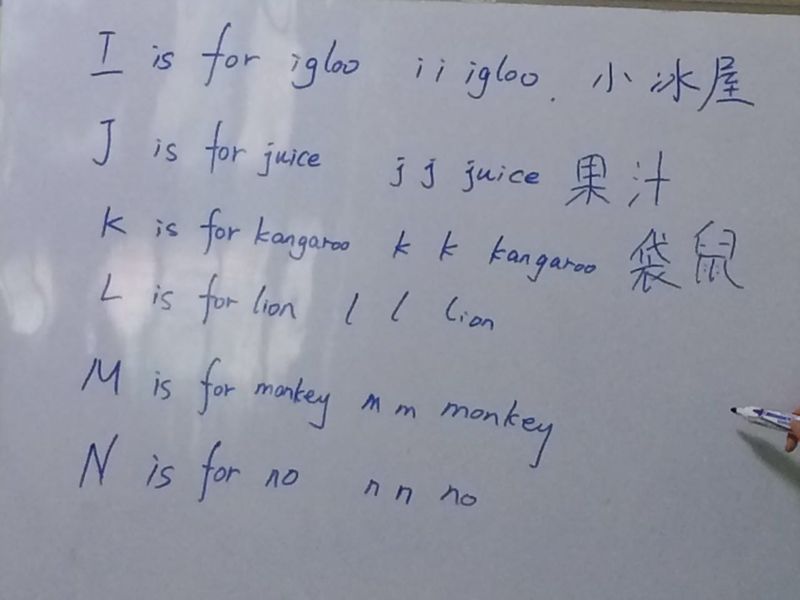 I is for igloo i i igloo. 小冰屋
J is for juice j j juice 果汁
K is for kangaroo k k kangaroo 袋鼠
L is for lion l l lion
M is for monkey m m monkey
N is for no n n no